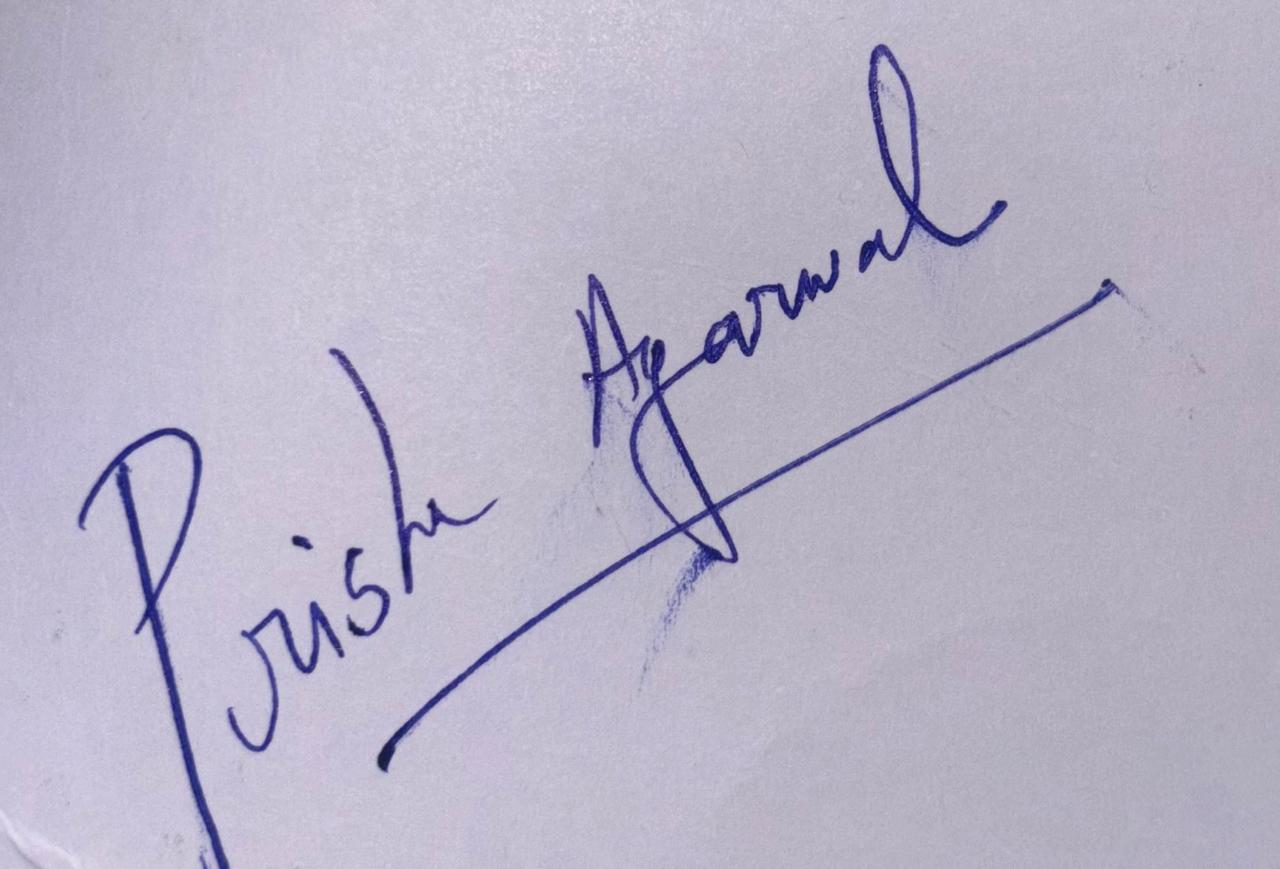 Prisha Agarwal